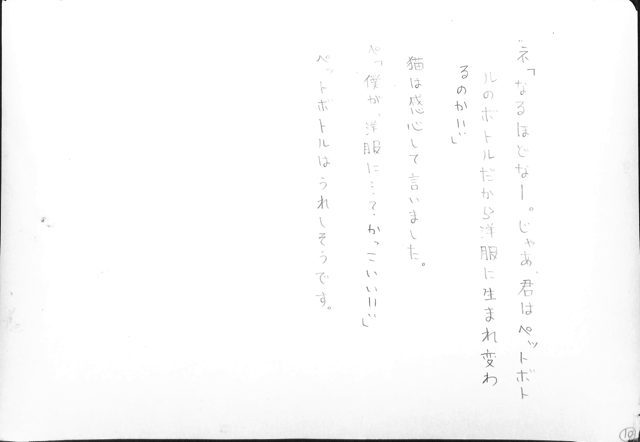 ネ「なるほどなー。じゃあ、君はペットボト
ルのボトルだから洋服に生まれ変わ
るのか!!」
猫は感心して言いました。
ペ「僕が、洋服に…?かっこいい!!」
ペットボトルはうれしそうです。
10